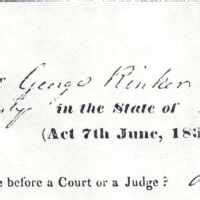 George Rinker
in the State of
(Act 7th June, 183
e before a Court or a Judge?